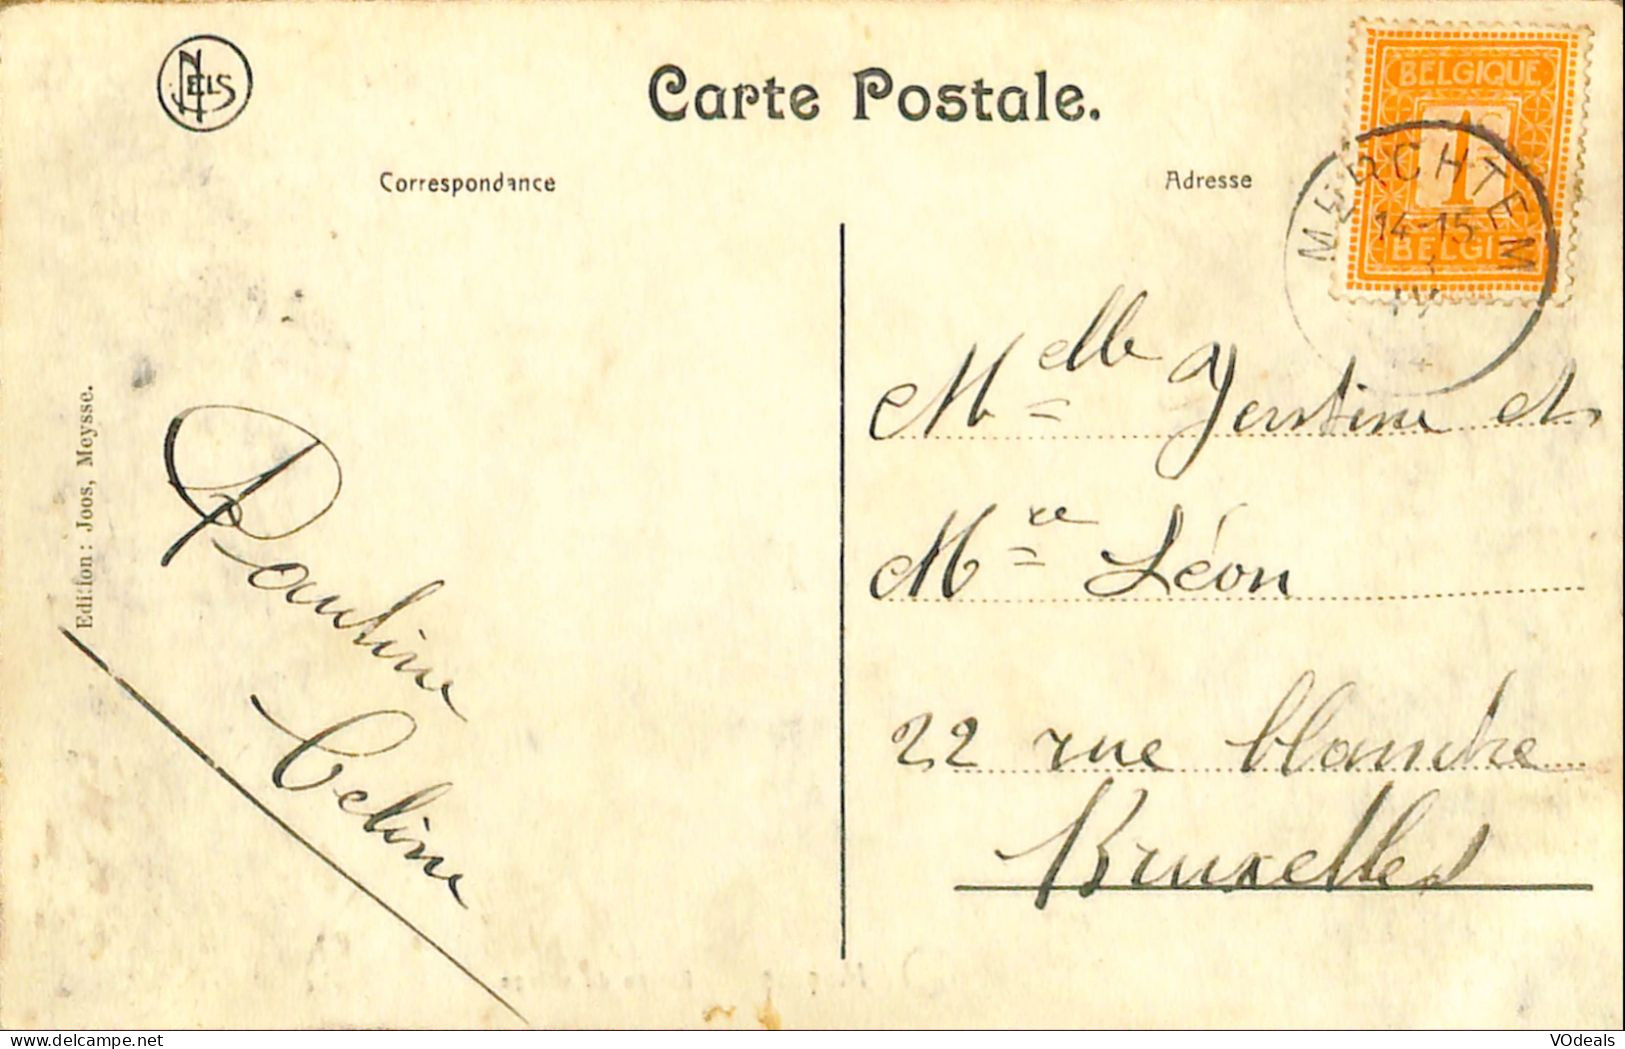 NELS
Carte Postale.
Correspondance
Adresse
BELGIQUE
1
BELGIË
MERCHTEM
14-15
IV
Edition: Joos, Meysse.
Pauline
Celine
Melle Justine et
Mre Léon
22 rue blanche
Bruxelles
VOdeals